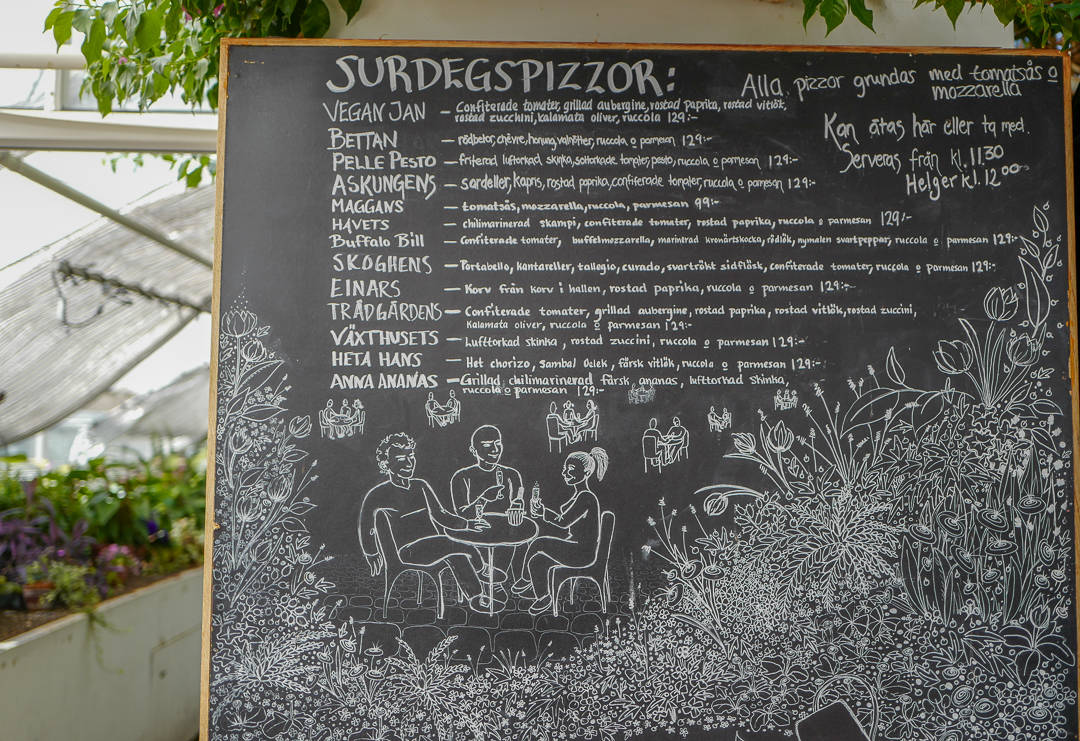 SURDEGSPIZZOR:
Alla pizzor grundas med tomatsås o
mozzarella
Kan ätas här eller ta med.
Serveras från kl. 11.30
Helger kl. 12⁰⁰
VEGAN JAN – Confiterade tomater, grillad aubergine, rostad paprika, rostad vitlök,
rostad zucchini, kalamata oliver, ruccola 129:-
BETTAN – rödbetor, chèvre, honung, valnötter, ruccola o parmesan 129:-
PELLE PESTO – friterad lufttorkad skinka, soltorkade tomater, pesto, ruccola o parmesan 129:-
ASKUNGENS – sardeller, kapris, rostad paprika, confiterade tomater, ruccola o parmesan 129:-
MAGGANS – tomatsås, mozzarella, ruccola, parmesan 99:-
HAVETS – chilimarinerad skampi, confiterade tomater, rostad paprika, ruccola o parmesan 129:-
Buffalo Bill – Confiterade tomater, buffelmozzarella, marinerad kronärtskocka, rödlök, nymalen svartpeppar, ruccola o parmesan 129:-
SKOGHENS – Portabello, kantareller, tallegio, curado, svartrökt sidfläsk, confiterade tomater, ruccola o parmesan 129:-
EINARS – Korv från korv i hallen, rostad paprika, ruccola o parmesan 129:-
TRÄDGÅRDENS – Confiterade tomater, grillad aubergine, rostad paprika, rostad vitlök, rostad zuccini,
Kalamata oliver, ruccola o parmesan 129:-
VÄXTHUSETS – Lufttorkad skinka, rostad zuccini, ruccola o parmesan 129:-
HETA HANS – Het chorizo, Sambal Oelek, färsk vitlök, ruccola o parmesan 129:-
ANNA ANANAS – Grillad chilimarinerad färsk ananas, lufttorkad skinka,
ruccola o parmesan 129:-